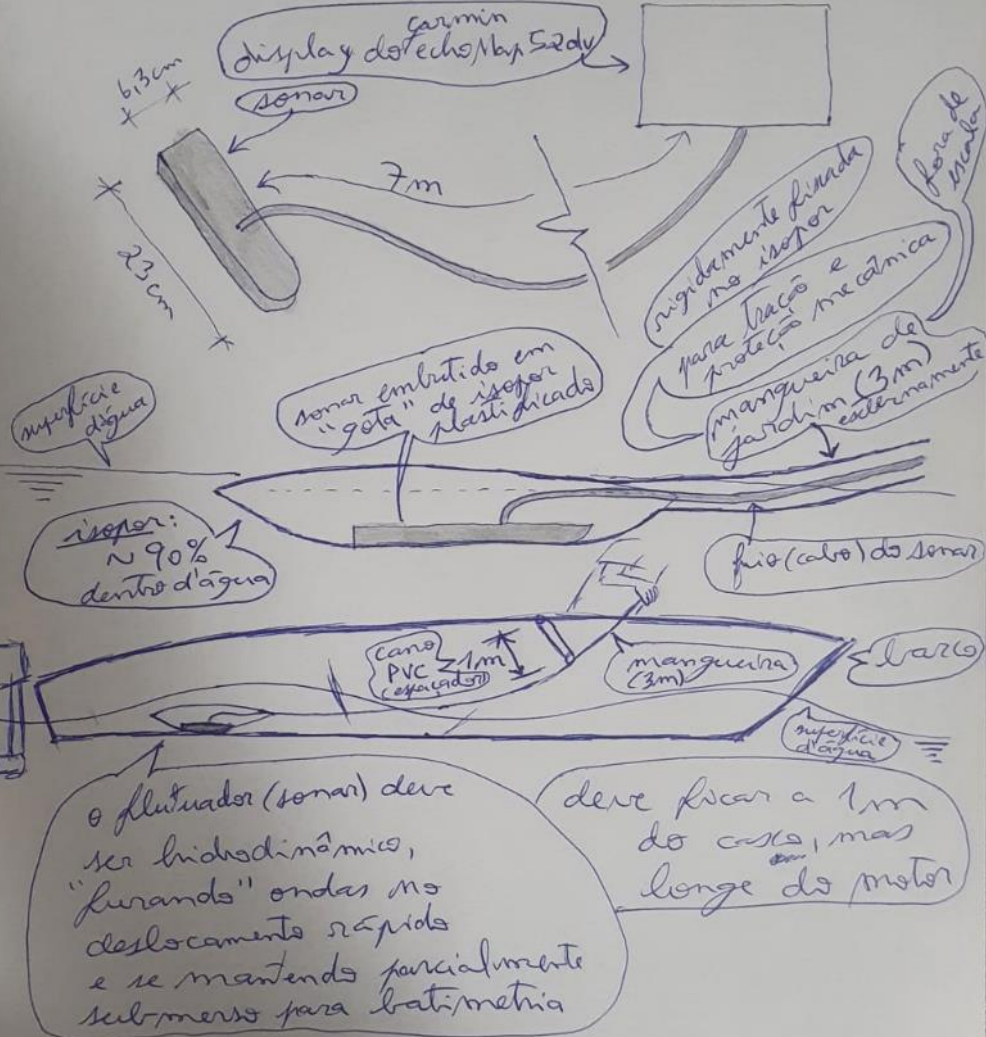 garmin
display do echoMap 52dv
6,3cm
sonar
7m
23cm
fora de
escala
rigidamente fixada
no isopor
para tração e
proteção mecânica
mangueira de
jardim (3m)
externamente
superfície
d'água
sonar embutido em
"gota" de isopor
plastificado
isopor:
~ 90%
dentro d'água
fio (cabo) do sonar
cano
PVC ≥ 1m
(espaçador)
mangueira
(3m)
barco
superfície
d'água
o flutuador (sonar) deve
ser hidrodinâmico,
"furando" ondas no
deslocamento rápido
e se mantendo parcialmente
submerso para batimetria
deve ficar a 1m
do casco, mas
longe do motor